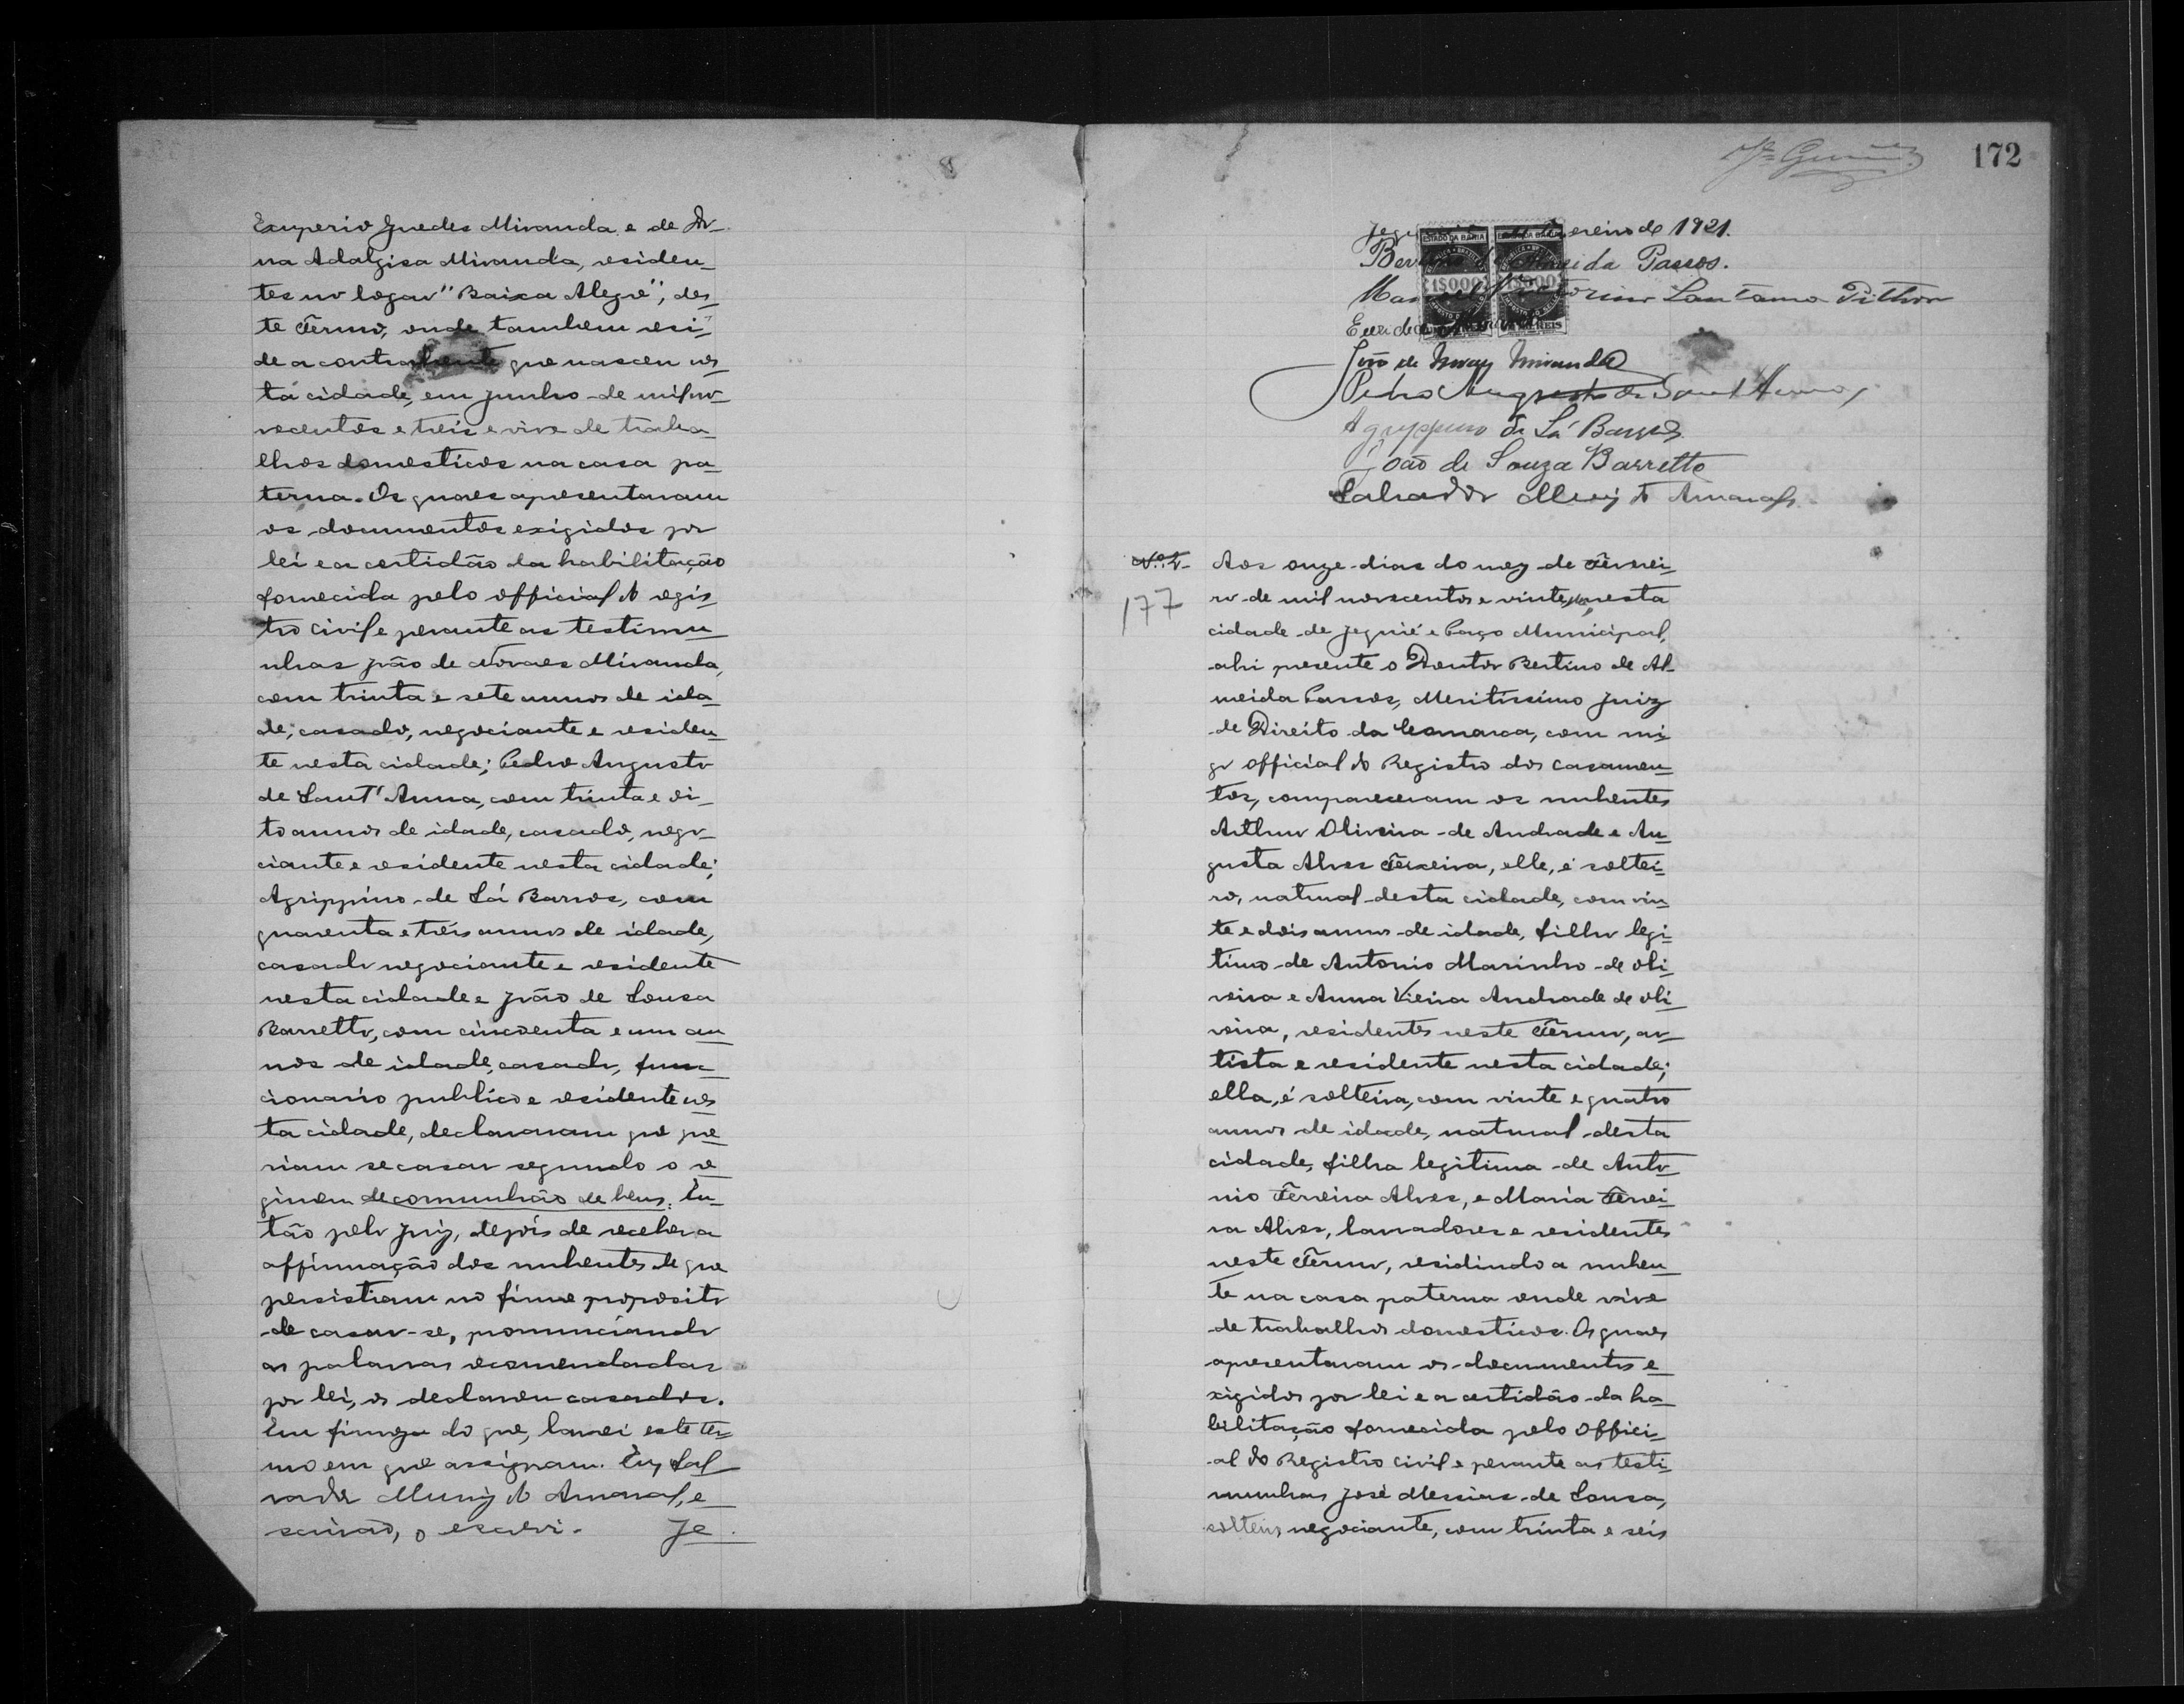 Exuperio Guedes Miranda e de Do
na Adalgisa Miranda, residen
tes no logar "Baixa Alegre", des
te Termo, onde tambem resi
de a contrahente que nasceu nes
ta cidade, em junho de mil no
vecentos e treis e vive de traba
lhos domesticos na casa pa
terna. Os quaes apresentaram
os documentos exigidos por
lei e a certidão da habilitação
fornecida pelo official do regis
tro civil e perante as testimu
nhas João de Novaes Miranda,
com trinta e sete annos de ida
de, casado, negociante e residen
te nesta cidade; Pedro Augusto
de Sant'Anna, com trinta e oi
to annos de idade, casado, nego
ciante e residente nesta cidade;
Agrippino de Sá Barros, com
quarenta e treis annos de idade,
casado negociante e residente
nesta cidade e João de Sousa
Barretto, com cincoenta e um an
nos de idade, casado, func
cionario publico e residente nes
ta cidade, declararam que que
riam se casar segundo o re
gimen de comunhão de bens. En
tão pelo Juiz, depois de receber a
affirmação dos nubentes de que
persistiam no firme proposito
de casar-se, pronunciando
as palavras recomendadas
por lei, os declarou casados.
Em firmeza do que, lavrei este ter
mo em que assignam. Eu, Sal
vador Muniz do Amaral, e
scrivão, o escrevi. Je
172
ereiro de 1921.
ESTADO DA BAHIA ESTADO DA BAHIA
1$000 1$000
Almeida Passos.
Manoel Victorino Santanna Pithon
João de Novaes Miranda
Pedro Augusto de Sant'Anna
Agrippino de Sá Barros
João de Souza Barretto
Salvador Muniz do Amaral
Nº 2 Aos onze dias do mez de Feverei
177 ro de mil novecentos e vinte um, nesta
cidade de Jequié e Paço Municipal,
ahi presente o Doutor Bertino de Al
meida Passos, Meritissimo Juiz
de Direito da Comarca, com mi
go official do Registro dos casamen
tos, compareceram os nubentes
Arthur Oliveira de Andrade e Au
gusta Alves Ferreira, elle, é soltei
ro, natural desta cidade, com vin
te e dois annos de idade, filho legi
timo de Antonio Marinho de Oli
veira e Anna Vieira Andrade de Oli
veira, residentes neste Termo, ar
tista e residente nesta cidade;
ella, é solteira, com vinte e quatro
annos de idade, natural desta
cidade, filha legitima de Anto
nio Ferreira Alves, e Maria Ferrei
ra Alves, lavradores e residentes
neste Termo, residindo a nuben
te na casa paterna onde vive
de trabalhos domesticos. Os quaes
apresentaram os documentos e
xigidos por lei e a certidão da ha
bilitação fornecida pelo offici
al do Registro civil e perante as testi
munhas José Messias de Sousa,
solteiro, negociante, com trinta e seis